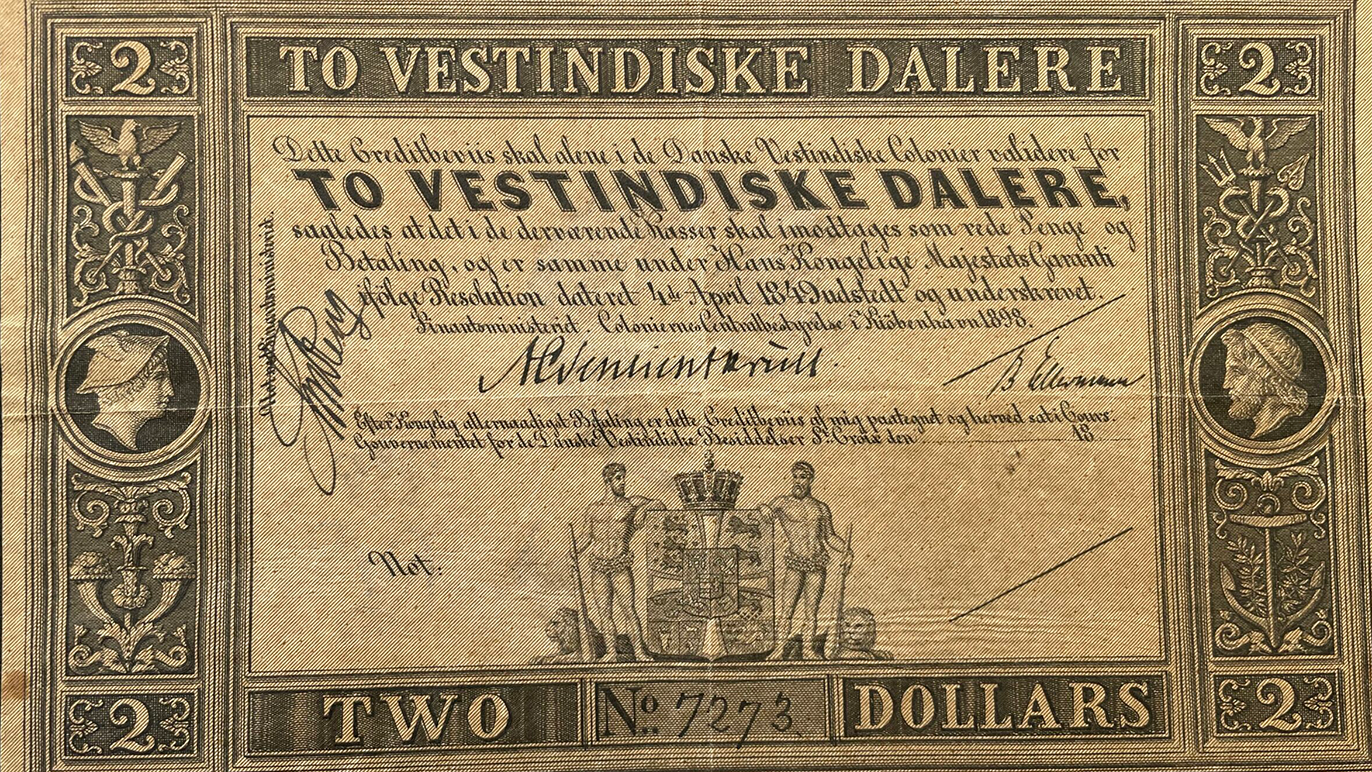 2 TO VESTINDISKE DALERE 2
Dette Creditbeviis skal alene i de Danske Vestindiske Colonier validere for
TO VESTINDISKE DALERE,
saaledes at det i de derværende Kasser skal imodtages som rede Penge og
Betaling, og er samme under Hans Kongelige Majestæts Garanti
ifölge Resolution dateret 4de April 1849 udstedt og underskrevet.
Finantsministeriet. Coloniernes Centralbestyrelse i Kiöbenhavn 1898.
B Ellermann
Efter Kongelig allernaadigst Befaling er dette Creditbeviis af mig paategnet og herved sat i Cours.
Gouvernementet for de Danske Vestindiske Besiddelser St. Croix den 18
Not:
2 TWO No. 7273. DOLLARS 2